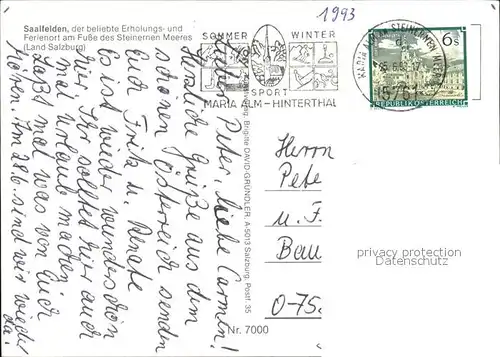 1993
Saalfelden, der beliebte Erholungs- und
Ferienort am Fuße des Steinernen Meeres
(Land Salzburg)
SOMMER WINTER
SPORT
MARIA ALM – HINTERTHAL
STEINERNEN MEER
5761
6 s
REPUBLIK ÖSTERREICH
Lieber Peter, liebe Carmen!
Herzliche Grüße aus dem
schönen Österreich senden
Euch Fritz u. Renate
Es ist wieder wunderschön
hier, Ihr solltet hier auch
mal Urlaub machen.
Laßt mal was von Euch
hören. Am 28.6. sind wir wieder
da!
Brigitte DAVID-GRÜNDLER, A-5013 Salzburg, Postf. 35
Nr. 7000
Herrn
Pete
u. F
Bau
O-75
privacy protection
Datenschutz